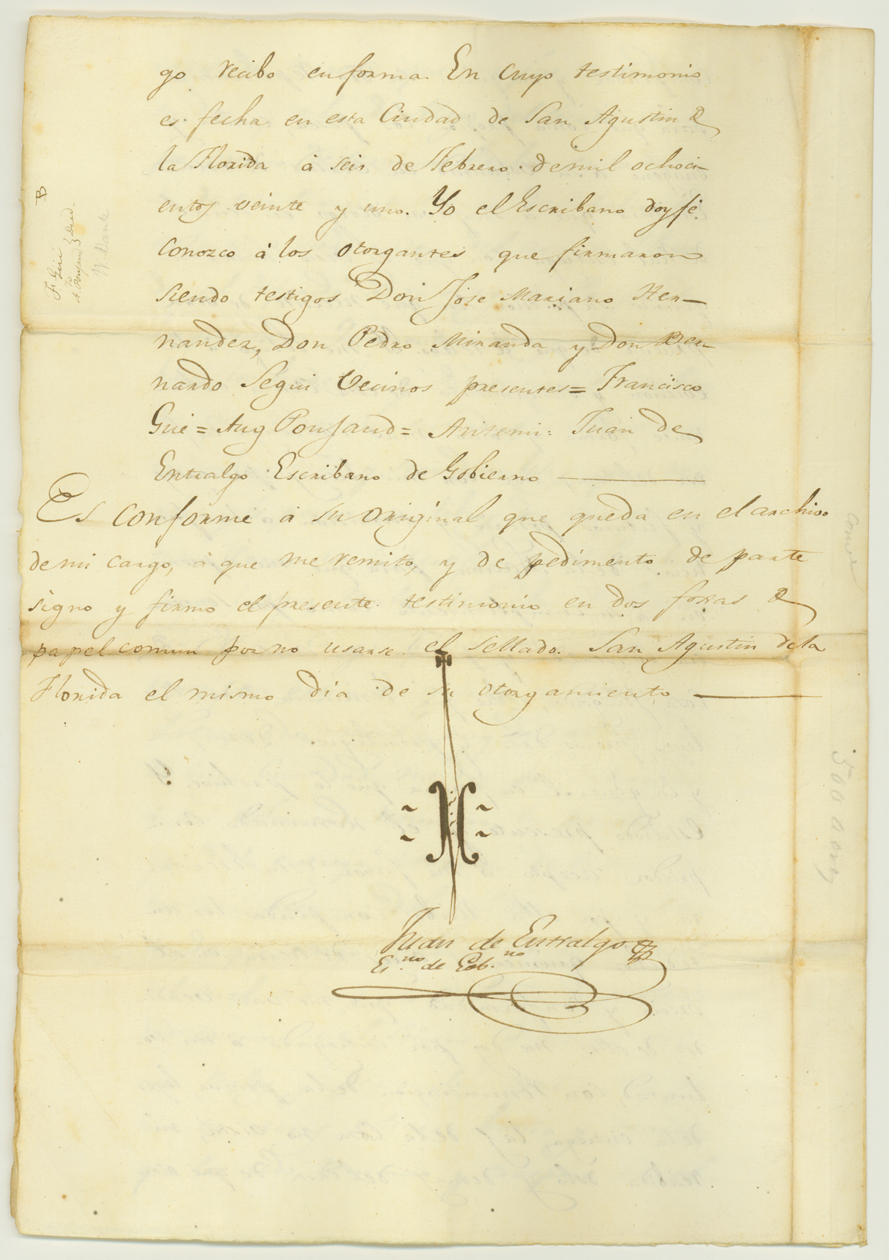 go recibo en forma. En cuyo testimonio
es fecha en esta Ciudad de San Agustin de
la Florida á seis de Febrero de mil ochoci
entos veinte y uno. Yo el Escribano doy fé
conozco á los otorgantes que firmaron
siendo testigos Don Jose Mariano Her-
nandez, Don Pedro Miranda y Don Ber-
nardo Segui Vecinos presentes = Francisco
Gué = Aug Poujaud = Antemi: Juan de
Entralgo Escribano de Gobierno
Es conforme á su original que queda en el archivo
de mi cargo, á que me remito, y de pedimento de parte
signo y firmo el presente testimonio en dos foxas de
papel comun por no usarse el sellado. San Agustin de la
Florida el mismo dia de su otorgamiento
Juan de Entralgo
Es.no de Gob.no
B
500 acres